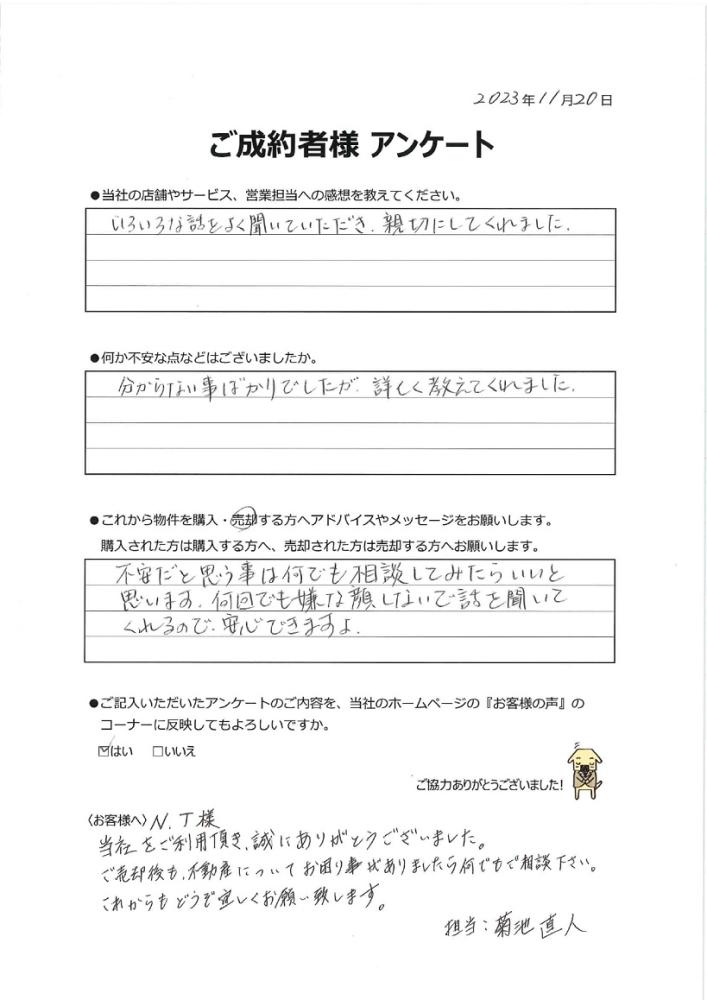 2023年11月20日
ご成約者様 アンケート
●当社の店舗やサービス、営業担当への感想を教えてください。
いろいろな話をよく聞いていただき、親切にしてくれました。
●何か不安な点などはございましたか。
分からない事ばかりでしたが、詳しく教えてくれました。
●これから物件を購入・売却する方へアドバイスやメッセージをお願いします。
購入された方は購入する方へ、売却された方は売却する方へお願いします。
不安だと思う事は何でも相談してみたらいいと
思います。何回でも嫌な顔しないで話を聞いて
くれるので、安心できますよ。
●ご記入いただいたアンケートのご内容を、当社のホームページの『お客様の声』の
コーナーに反映してもよろしいですか。
☑はい □いいえ
ご協力ありがとうございました!
〈お客様へ〉N.T様
当社をご利用頂き、誠にありがとうございました。
ご売却後も、不動産についてお困り事がありましたら何でもご相談下さい。
これからもどうぞ宜しくお願い致します。
担当:菊池直人